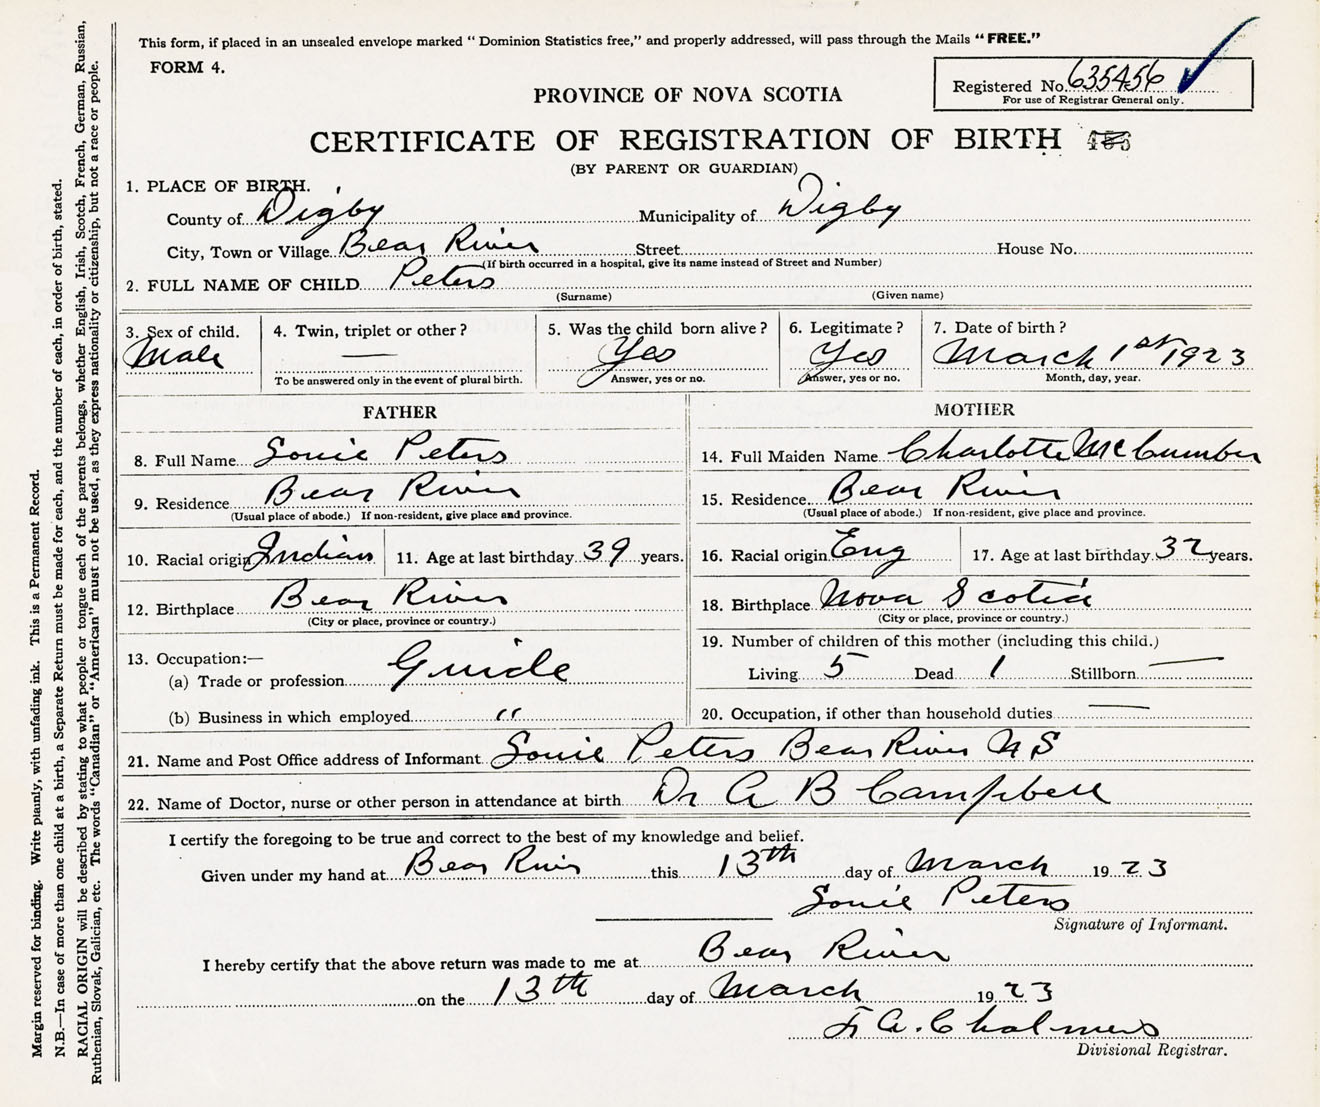 This form, if placed in an unsealed envelope marked "Dominion Statistics free," and properly addressed, will pass through the Mails "FREE."
FORM 4.
Registered No. 635456
For use of Registrar General only.
PROVINCE OF NOVA SCOTIA
CERTIFICATE OF REGISTRATION OF BIRTH
(BY PARENT OR GUARDIAN)
1. PLACE OF BIRTH.
County of Digby Municipality of Digby
City, Town or Village Bear River Street House No.
(If birth occurred in a hospital, give its name instead of Street and Number)
2. FULL NAME OF CHILD Peters
(Surname) (Given name)
3. Sex of child. Male
4. Twin, triplet or other? —
To be answered only in the event of plural birth.
5. Was the child born alive? Yes
Answer, yes or no.
6. Legitimate? Yes
Answer, yes or no.
7. Date of birth? March 1st 1923
Month, day, year.
FATHER
8. Full Name Louie Peters
9. Residence Bear River
(Usual place of abode.) If non-resident, give place and province.
10. Racial origin Indian 11. Age at last birthday 39 years.
12. Birthplace Bear River
(City or place, province or country.)
13. Occupation:—
(a) Trade or profession Guide
(b) Business in which employed "
MOTHER
14. Full Maiden Name Charlotte McCumber
15. Residence Bear River
(Usual place of abode.) If non-resident, give place and province.
16. Racial origin Eng 17. Age at last birthday 32 years.
18. Birthplace Nova Scotia
(City or place, province or country.)
19. Number of children of this mother (including this child.)
Living 5 Dead 1 Stillborn —
20. Occupation, if other than household duties —
21. Name and Post Office address of Informant Louie Peters Bear River N S
22. Name of Doctor, nurse or other person in attendance at birth Dr A B Campbell
I certify the foregoing to be true and correct to the best of my knowledge and belief.
Given under my hand at Bear River this 13th day of March 1923
Louie Peters
Signature of Informant.
I hereby certify that the above return was made to me at Bear River
on the 13th day of March 1923
F. A. Chalmers
Divisional Registrar.
Margin reserved for binding. Write plainly, with unfading ink. This is a Permanent Record.
N.B.—In case of more than one child at a birth, a Separate Return must be made for each, and the number of each, in order of birth, stated.
RACIAL ORIGIN will be described by stating to what people or tongue each of the parents belongs, whether English, Irish, Scotch, French, German, Russian,
Ruthenian, Slovak, Galician, etc. The words "Canadian" or "American" must not be used, as they express nationality or citizenship, but not a race or people.